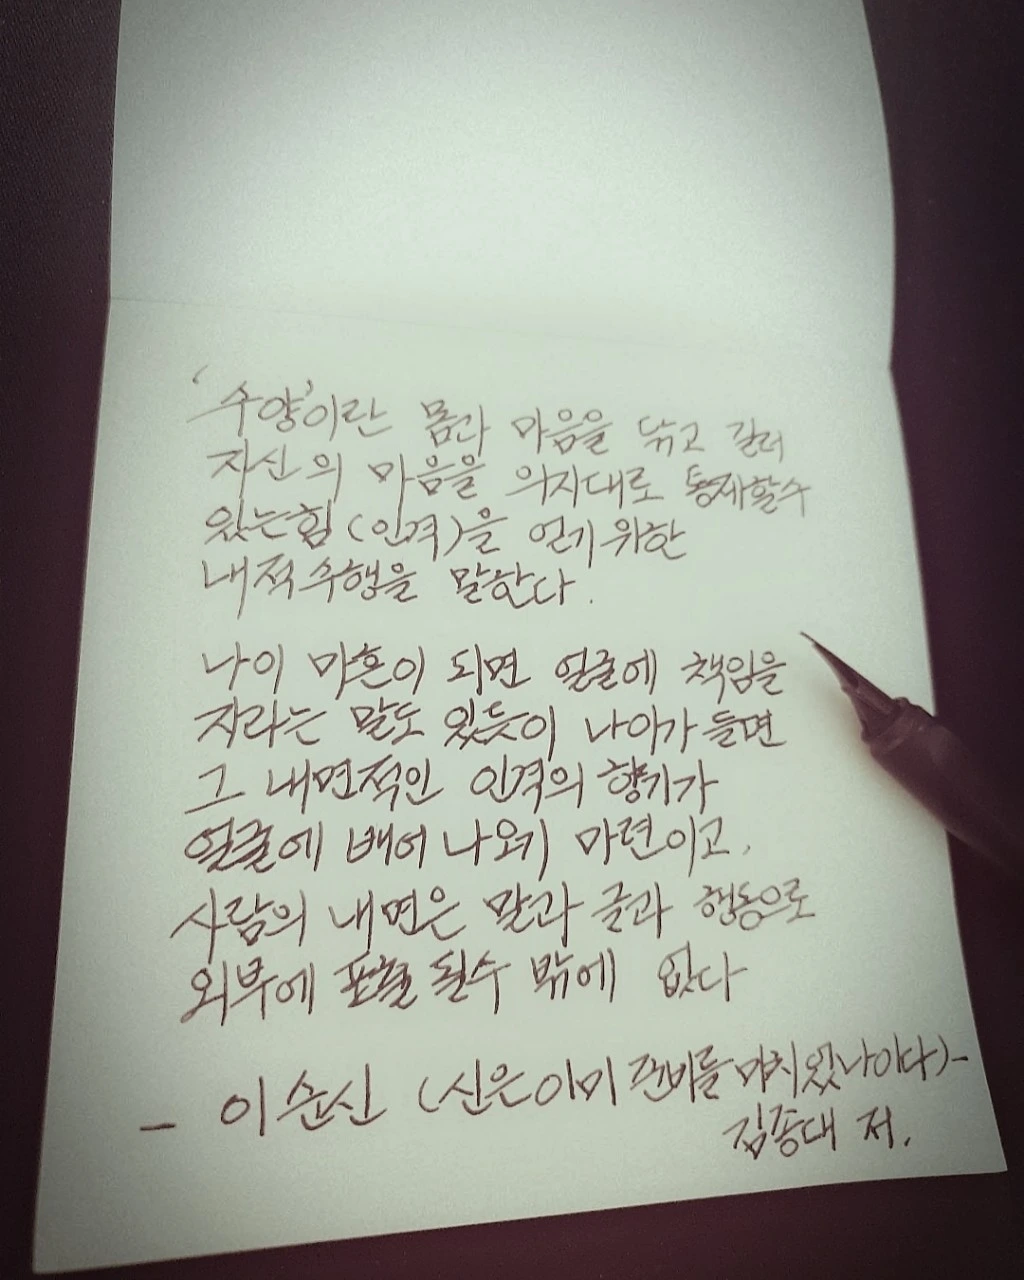 '수양'이란 몸과 마음을 닦고 길러
자신의 마음을 의지대로 통제할수
있는힘(인격)을 얻기위한
내적수행을 말한다.
나이 마흔이 되면 얼굴에 책임을
지라는 말도 있듯이 나이가 들면
그 내면적인 인격의 향기가
얼굴에 배어 나오기 마련이고,
사람의 내면은 말과 글과 행동으로
외부에 표출 될수 밖에 없다
- 이순신 (신은이미 준비를 마치었나이다)-
김종대 저.